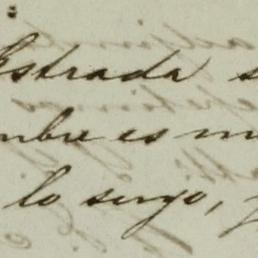 Estrada s
mbre es m
lo suyo,